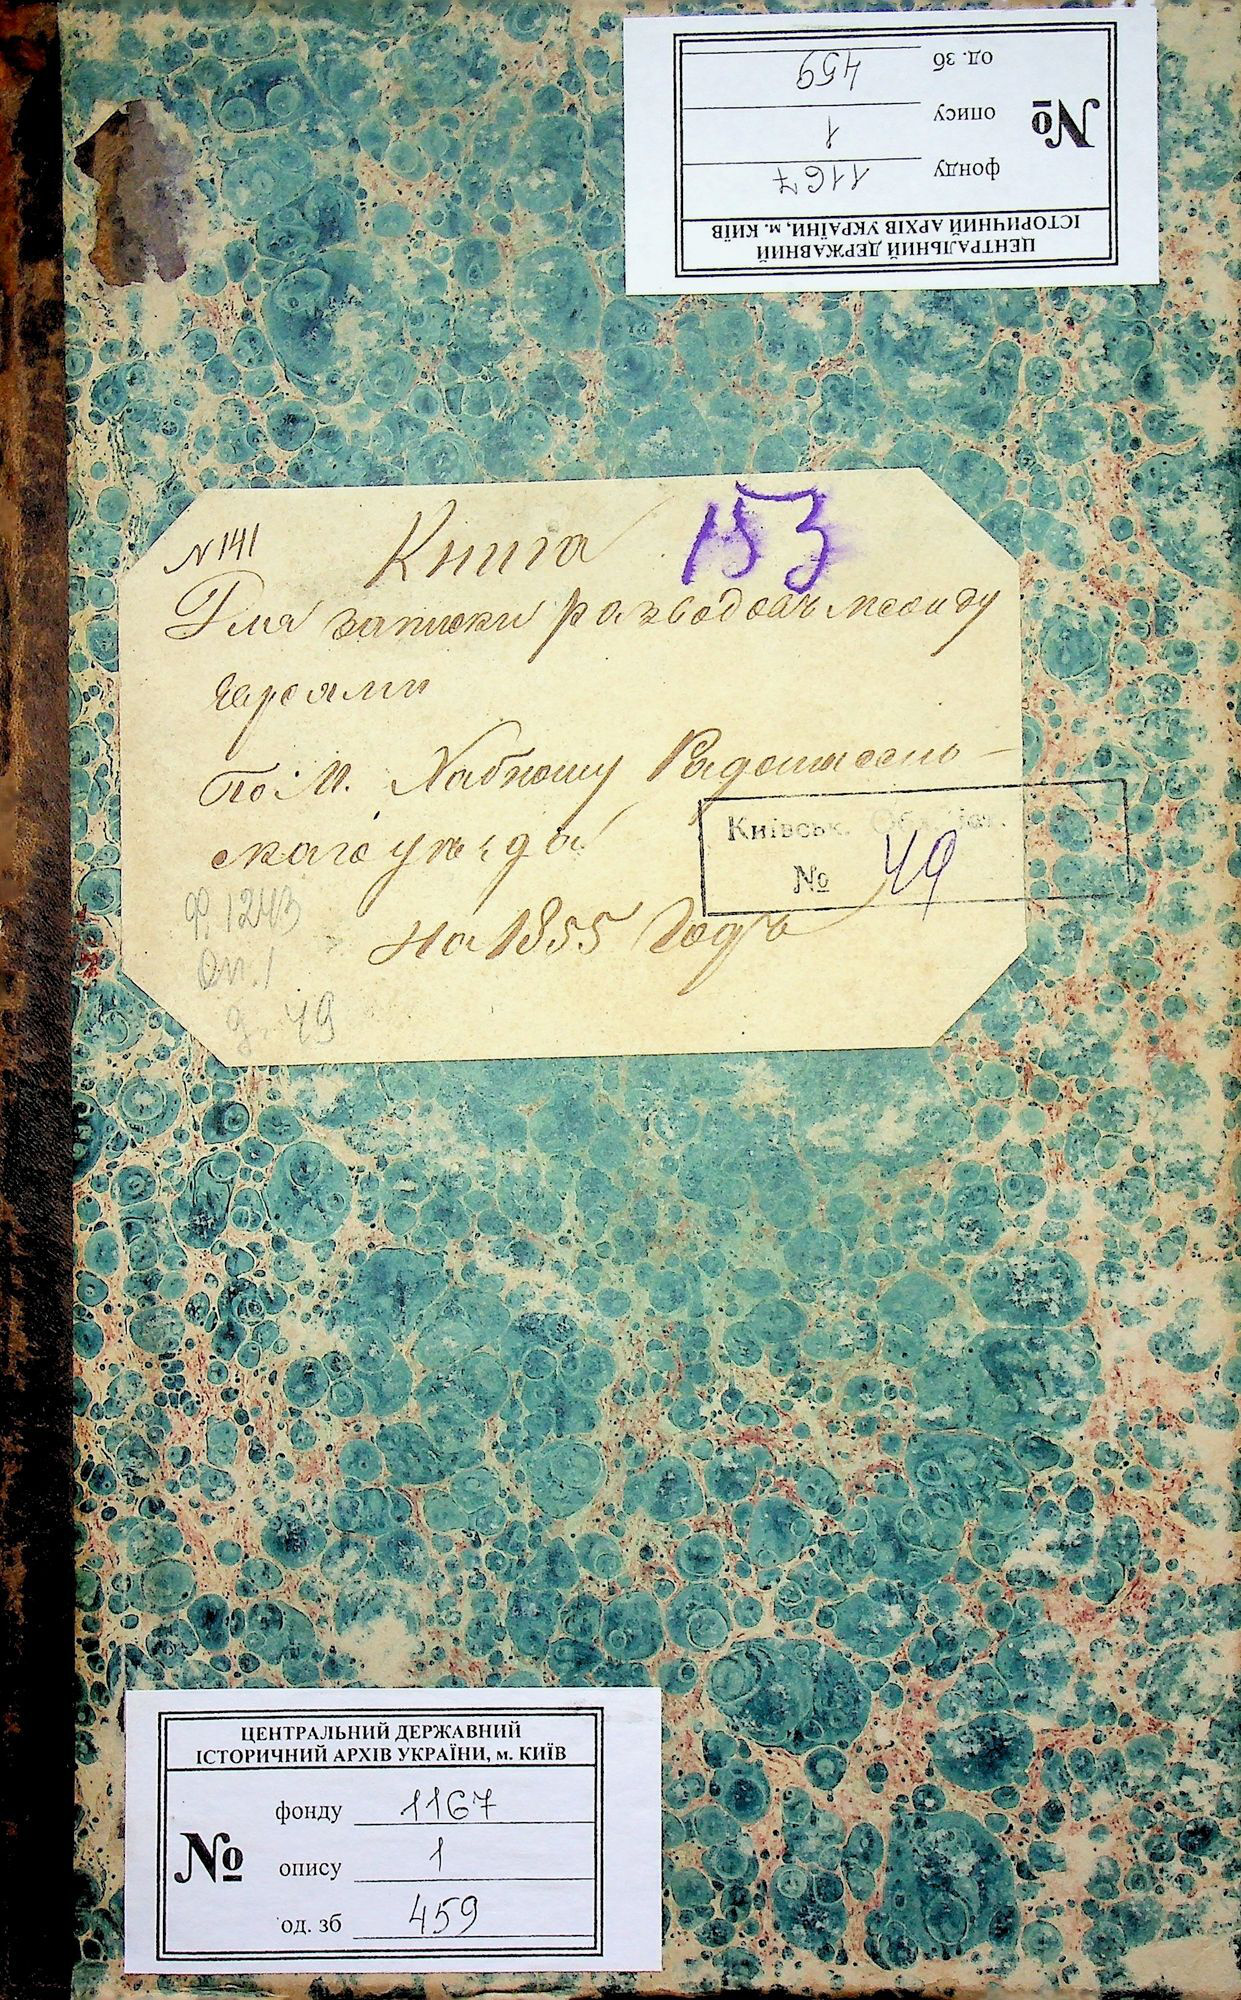 ЦЕНТРАЛЬНИЙ ДЕРЖАВНИЙ
ІСТОРИЧНИЙ АРХІВ УКРАЇНИ, м. КИЇВ
№
фонду 1167
опису 1
од. зб 459
N 141
Книга 153
Для записки разводовъ между
евреями
По М. Хабному Радомысль-
скаго уезда
на 1855 Годъ
Київськ.
№ 49
Ф. 1243
Оп. 1
д. 49
ЦЕНТРАЛЬНИЙ ДЕРЖАВНИЙ
ІСТОРИЧНИЙ АРХІВ УКРАЇНИ, м. КИЇВ
№
фонду 1167
опису 1
од. зб 459